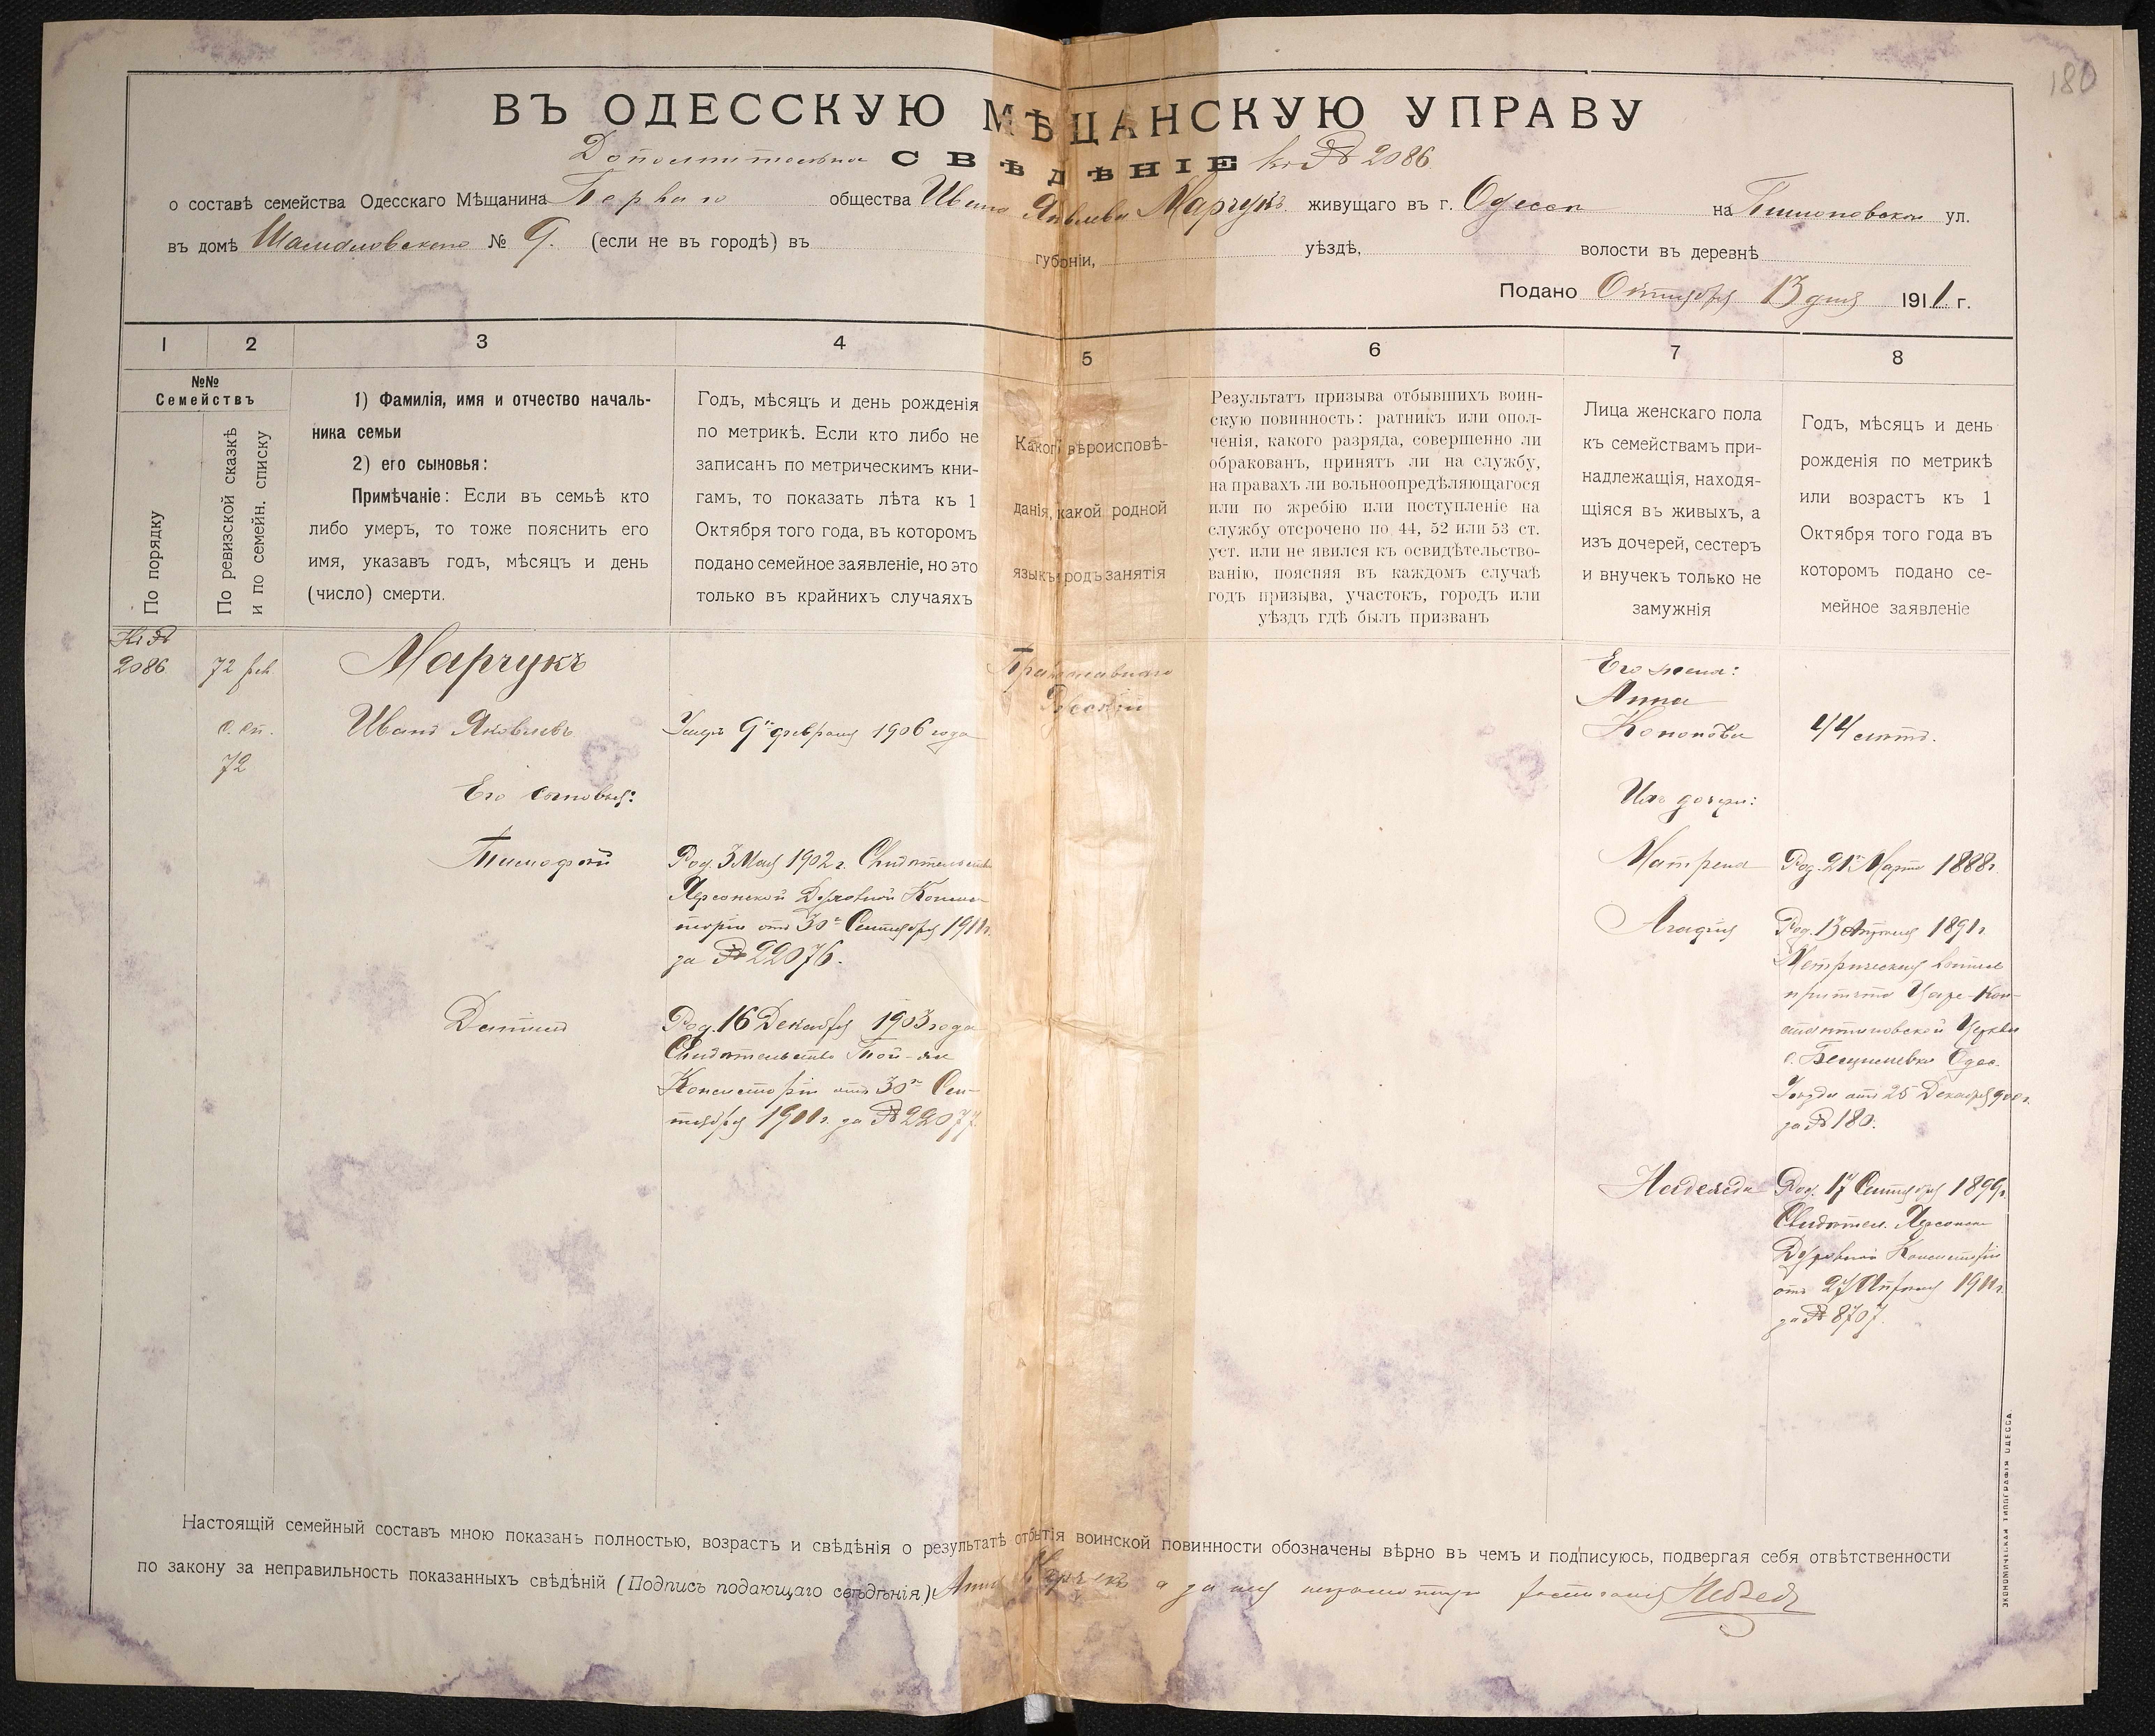 180
ВЪ ОДЕССКУЮ МѢЩАНСКУЮ УПРАВУ
Дополнительное СВѢДѢНІЕ къ № 2086
о составѣ семейства Одесскаго Мѣщанина общества Ивана Яковлева Марчукъ живущаго въ г. Одессѣ на ул.
въ домѣ № 9. (если не въ городѣ) въ губерніи, уѣздѣ, волости въ деревнѣ
Подано Октября 13 дня 1911 г.
1 2 3 4 5 6 7 8
№№
Семействъ
По порядку
По ревизской сказкѣ
и по семейн. списку
1) Фамилія, имя и отчество началь-
ника семьи
2) его сыновья:
Примѣчаніе: Если въ семьѣ кто
либо умеръ, то тоже пояснить его
имя, указавъ годъ, мѣсяцъ и день
(число) смерти.
Годъ, мѣсяцъ и день рожденія
по метрикѣ. Если кто либо не
записанъ по метрическимъ кни-
гамъ, то показать лѣта къ 1
Октября того года, въ которомъ
подано семейное заявленіе, но это
только въ крайнихъ случаяхъ
Какого вѣроисповѣ-
данія, какой родной
языкъ и родъ занятія
Результатъ призыва отбывшихъ воин-
скую повинность: ратникъ или опол-
ченія, какого разряда, совершенно ли
обракованъ, принятъ ли на службу,
на правахъ ли вольноопредѣляющагося
или по жребію или поступленіе на
службу отсрочено по 44, 52 или 53 ст.
уст. или не явился къ освидѣтельство-
ванію, поясняя въ каждомъ случаѣ
годъ призыва, участокъ, городъ или
уѣздъ гдѣ былъ призванъ
Лица женскаго пола
къ семействамъ при-
надлежащія, находя-
щіяся въ живыхъ, а
изъ дочерей, сестеръ
и внучекъ только не
замужнія
Годъ, мѣсяцъ и день
рожденія по метрикѣ
или возрастъ къ 1
Октября того года въ
которомъ подано се-
мейное заявленіе
Къ №
2086
72 рев
с. сп.
72
Марчукъ
Иванъ Яковлевъ
Умеръ 9го февраля 1906 года
Православнаго
Русскій
Его жена:
Анна
Кононова
44 лѣтъ.
Его сыновья:
Тимофей
Род. 3 Мая 1902 г. Свидѣтельство
Херсонской Духовной Консис-
торіи отъ 30го Сентября 1911 г.
за № 22076.
Даніилъ
Род. 16 Декабря 1903 года
Свидѣтельство Той-же
Консисторіи отъ 30го Сен-
тября 1911 г. за № 22077.
Ихъ дочери:
Матрена
Род. 21го Марта 1888 г.
Агафія
Род. 13 Апрѣля 1891 г.
Метрическая выпись
причта Царе-Кон-
стантиновской Церкви
Одес.
Уѣзда отъ 25 Декабря 900 г.
за № 180.
Надежда
Род. 17 Сентября 1899 г.
Свидѣтел. Херсонск
Духовной Консисторіи
отъ 27 Апрѣля 1911 г.
за № 8707.
Настоящій семейный составъ мною показанъ полностью, возрастъ и свѣдѣнія о результатѣ отбытія воинской повинности обозначены вѣрно въ чемъ и подписуюсь, подвергая себя отвѣтственности
по закону за неправильность показанныхъ свѣдѣній (Подпись подающаго свѣдѣнія) Анна Марчукъ а за нея неграмотную
ЭКОНОМИЧЕСКАЯ ТИПОГРАФІЯ ОДЕССА.